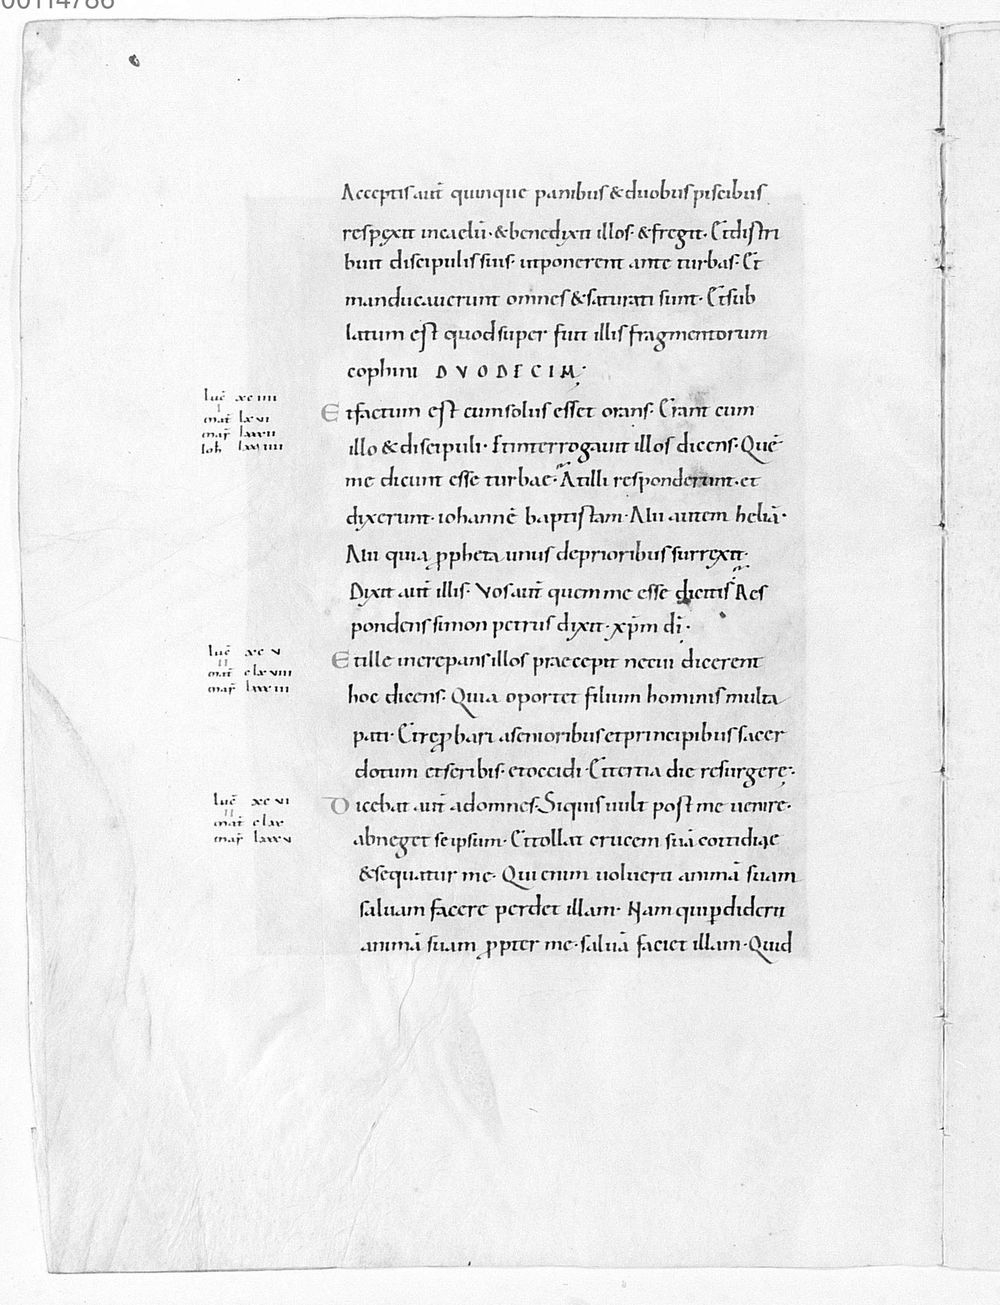 00114786
Acceptis aut̄ quinque panibus & duobus piscibus
respexit incaelū · & benedixit illos · & fregit · Et distri
buit discipulis suis · ut ponerent ante turbas · Et
manducauerunt omnes & saturati sunt · Et sub
latum est quod super fuit illis fragmentorum
cophini DVODECIM ·
luc̄ xciiii
I
mat̄ lxvi
mar̄ lxxvii
ioh̄ lxxiiii
Et factum est cum solus esset orans · Erant cum
illo & discipuli · Et interrogauit illos dicens · Quē
me dicunt esse turbae · At illi responderunt · et
dixerunt · iohannē baptistam · Alii autem heliā ·
Alii quia ꝓpheta unus de prioribus surrexit ·
Dixit aut̄ illis · Vos aut̄ quem me esse dicitis Res
pondens simon petrus dixit · xp̄m dī ·
luc̄ xcv
II
mat̄ clxviii
mar̄ lxxxiii
Et ille increpans illos praecepit necui dicerent
hoc dicens · Quia oportet filium hominis multa
pati · Et reꝓbari asenioribus et principibus sacer
dotum et scribis · et occidi · Et tertia die resurgere ·
luc̄ xcvi
II
mat̄ clxx
mar̄ lxxxv
Dicebat aut̄ ad omnes · Siquis uult post me uenire ·
abneget se ipsum · Et tollat crucem suā cottidiae
& sequatur me · Qui enim uoluerit animā suam
saluam facere perdet illam · Nam qui ꝑdiderit
animā suam ꝓpter me · saluā faciet illam · Quid